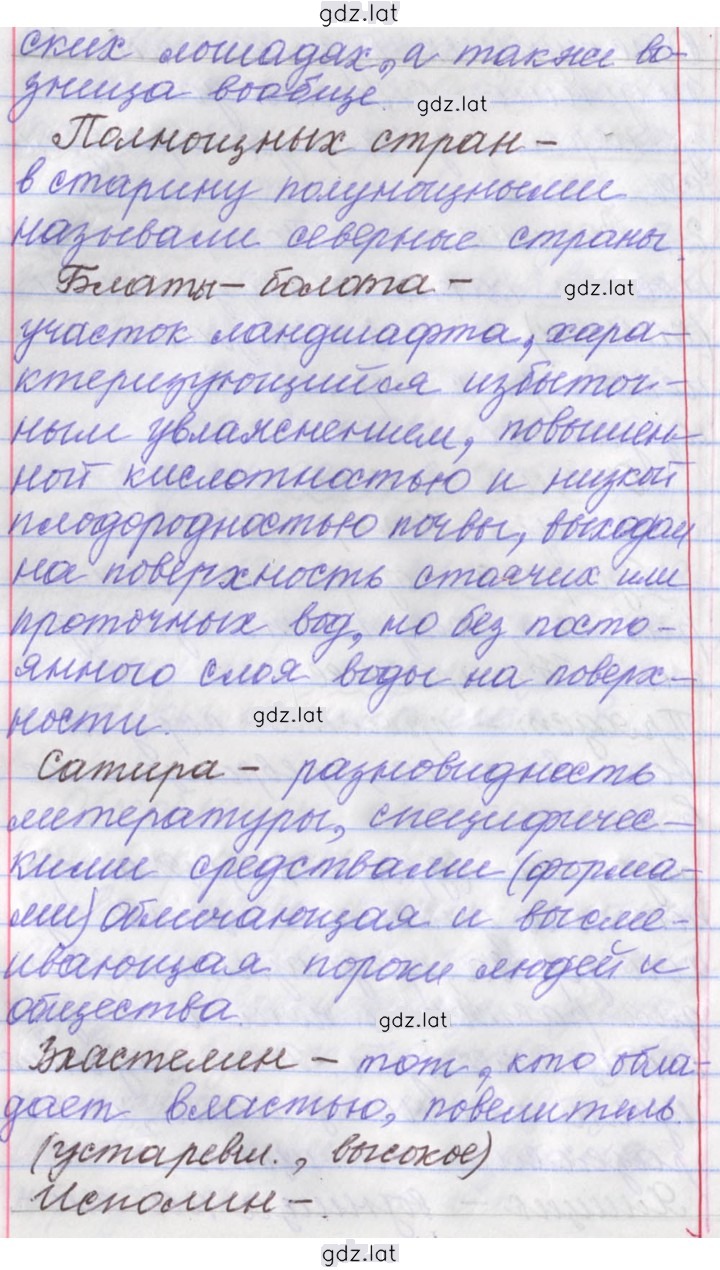 gdz.lat
ских лошадах, а также во-
зница вообще.
gdz.lat
Полнощных стран -
в старину полунощными
называли северные страны.
Блаты - болота -
gdz.lat
участок ландшафта, хара-
ктеризующийся избыточ-
ным увлажнением, повышен-
ной кислотностью и низкой
плодородностью почвы, выходом
на поверхность стоячих или
проточных вод, но без посто-
янного слоя воды на поверх-
ности.
gdz.lat
Сатира - разновидность
литературы, специфичес-
кими средствами (форма-
ми) обличающая и высме-
ивающая пороки людей и
общества.
gdz.lat
Властелин - тот, кто обла-
дает властью, повелитель.
(устаревш., высокое)
Исполин -
gdz.lat